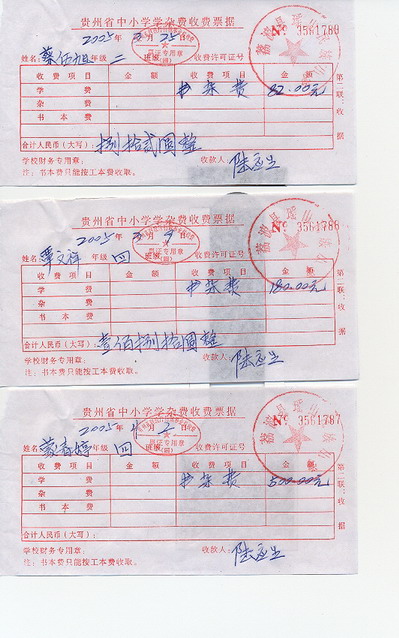 贵州省中小学学杂费收费票据
2005年3月25日 № 3561789
姓名: 年级 二 班级 收费许可证号
收费项目 金额 收费项目 金额
学费 书杂费 82.00元
杂费
书本费
合计人民币(大写): 捌拾贰圆整
学校财务专用章: 收款人: 陆应生
注:书本费只能按工本费收取。
第二联:收据
荔波县瑶山
贵州省中小学学杂费收费票据
2005年3月 日 № 3561788
姓名: 覃文 年级 四 班级 收费许可证号
收费项目 金额 收费项目 金额
学费 书杂费 180.00元
杂费
书本费
合计人民币(大写): 壹佰捌拾圆整
学校财务专用章: 收款人: 陆应生
注:书本费只能按工本费收取。
第二联:收据
荔波县瑶山
贵州省中小学学杂费收费票据
2005年4月2日 № 3561787
姓名: 婷 年级 四 班级 收费许可证号
收费项目 金额 收费项目 金额
学费 书杂费 500.00元
杂费
书本费
合计人民币(大写):
学校财务专用章: 收款人: 陆应生
注:书本费只能按工本费收取。
第二联:收据
荔波县瑶山